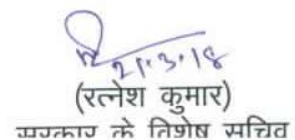 21.3.18
(रत्नेश कुमार)
सरकार के विशेष सचिव